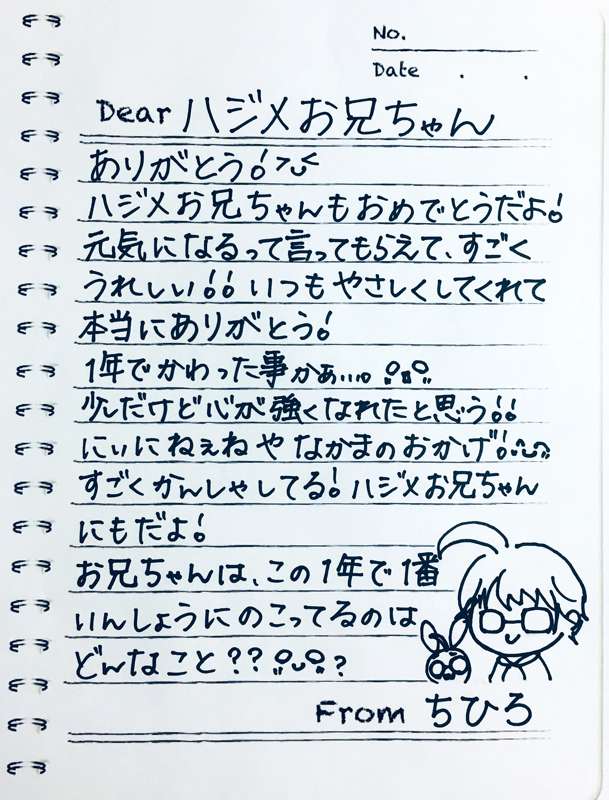 No.
Date . .
Dear ハジメお兄ちゃん
ありがとう! >ᴗ<
ハジメお兄ちゃんもおめでとうだよ!
元気になるって言ってもらえて、すごく
うれしい!! いつもやさしくしてくれて
本当にありがとう!
1年でかわった事かぁ...。
少しだけど心が強くなれたと思う!!
にぃにねぇねやなかまのおかげ!
すごくかんしゃしてる! ハジメお兄ちゃん
にもだよ!
お兄ちゃんは、この1年で1番
いんしょうにのこってるのは
どんなこと?? ?
From ちひろ